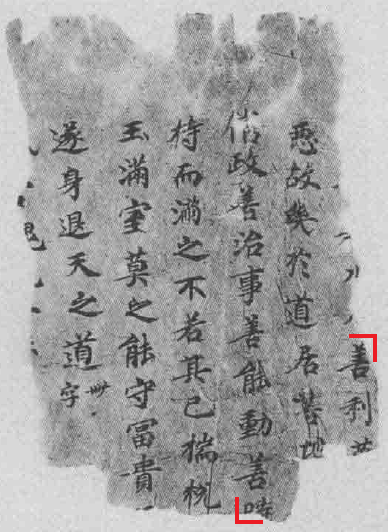 善利萬
惡故幾於道居善地
信政善治事善能動善時
持而滿之不若其已揣梲
玉滿室莫之能守富貴
遂身退天之道卅字